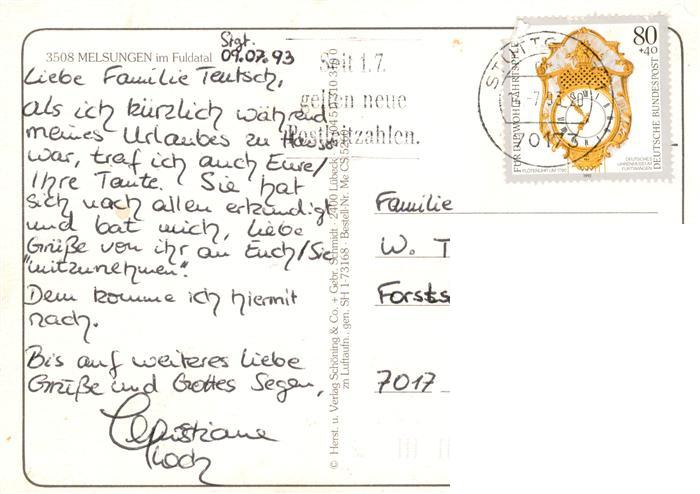 3508 MELSUNGEN im Fuldatal
Stgt.
09.07.93
Liebe Familie Teutsch,
als ich kürzlich während
meines Urlaubes zu Hause
war, traf ich auch Eure/
Ihre Tante. Sie hat
sich nach allen erkundigt
und bat mich, liebe
Grüße von ihr an Euch/Sie
"mitzunehmen".
Dem komme ich hiermit
nach.
Bis auf weiteres liebe
Grüße und Gottes Segen,
Christiane
Koch
© Herst. u. Verlag Schöning & Co. + Gebr. Schmidt · 2400 Lübeck
zn Luftaufn. gen. SH 1-73168 · Bestell-Nr. Me CS
Seit 1.7.
gelten neue
Postleitzahlen.
STUTTG
7.93
7017
80
+40
FÜR DIE WOHLFAHRTSPFLEGE
DEUTSCHE BUNDESPOST
FLÖTENUHR UM 1790
DEUTSCHES
UHRENMUSEUM
FURTWANGEN
Familie
W. T
Forsts
7017